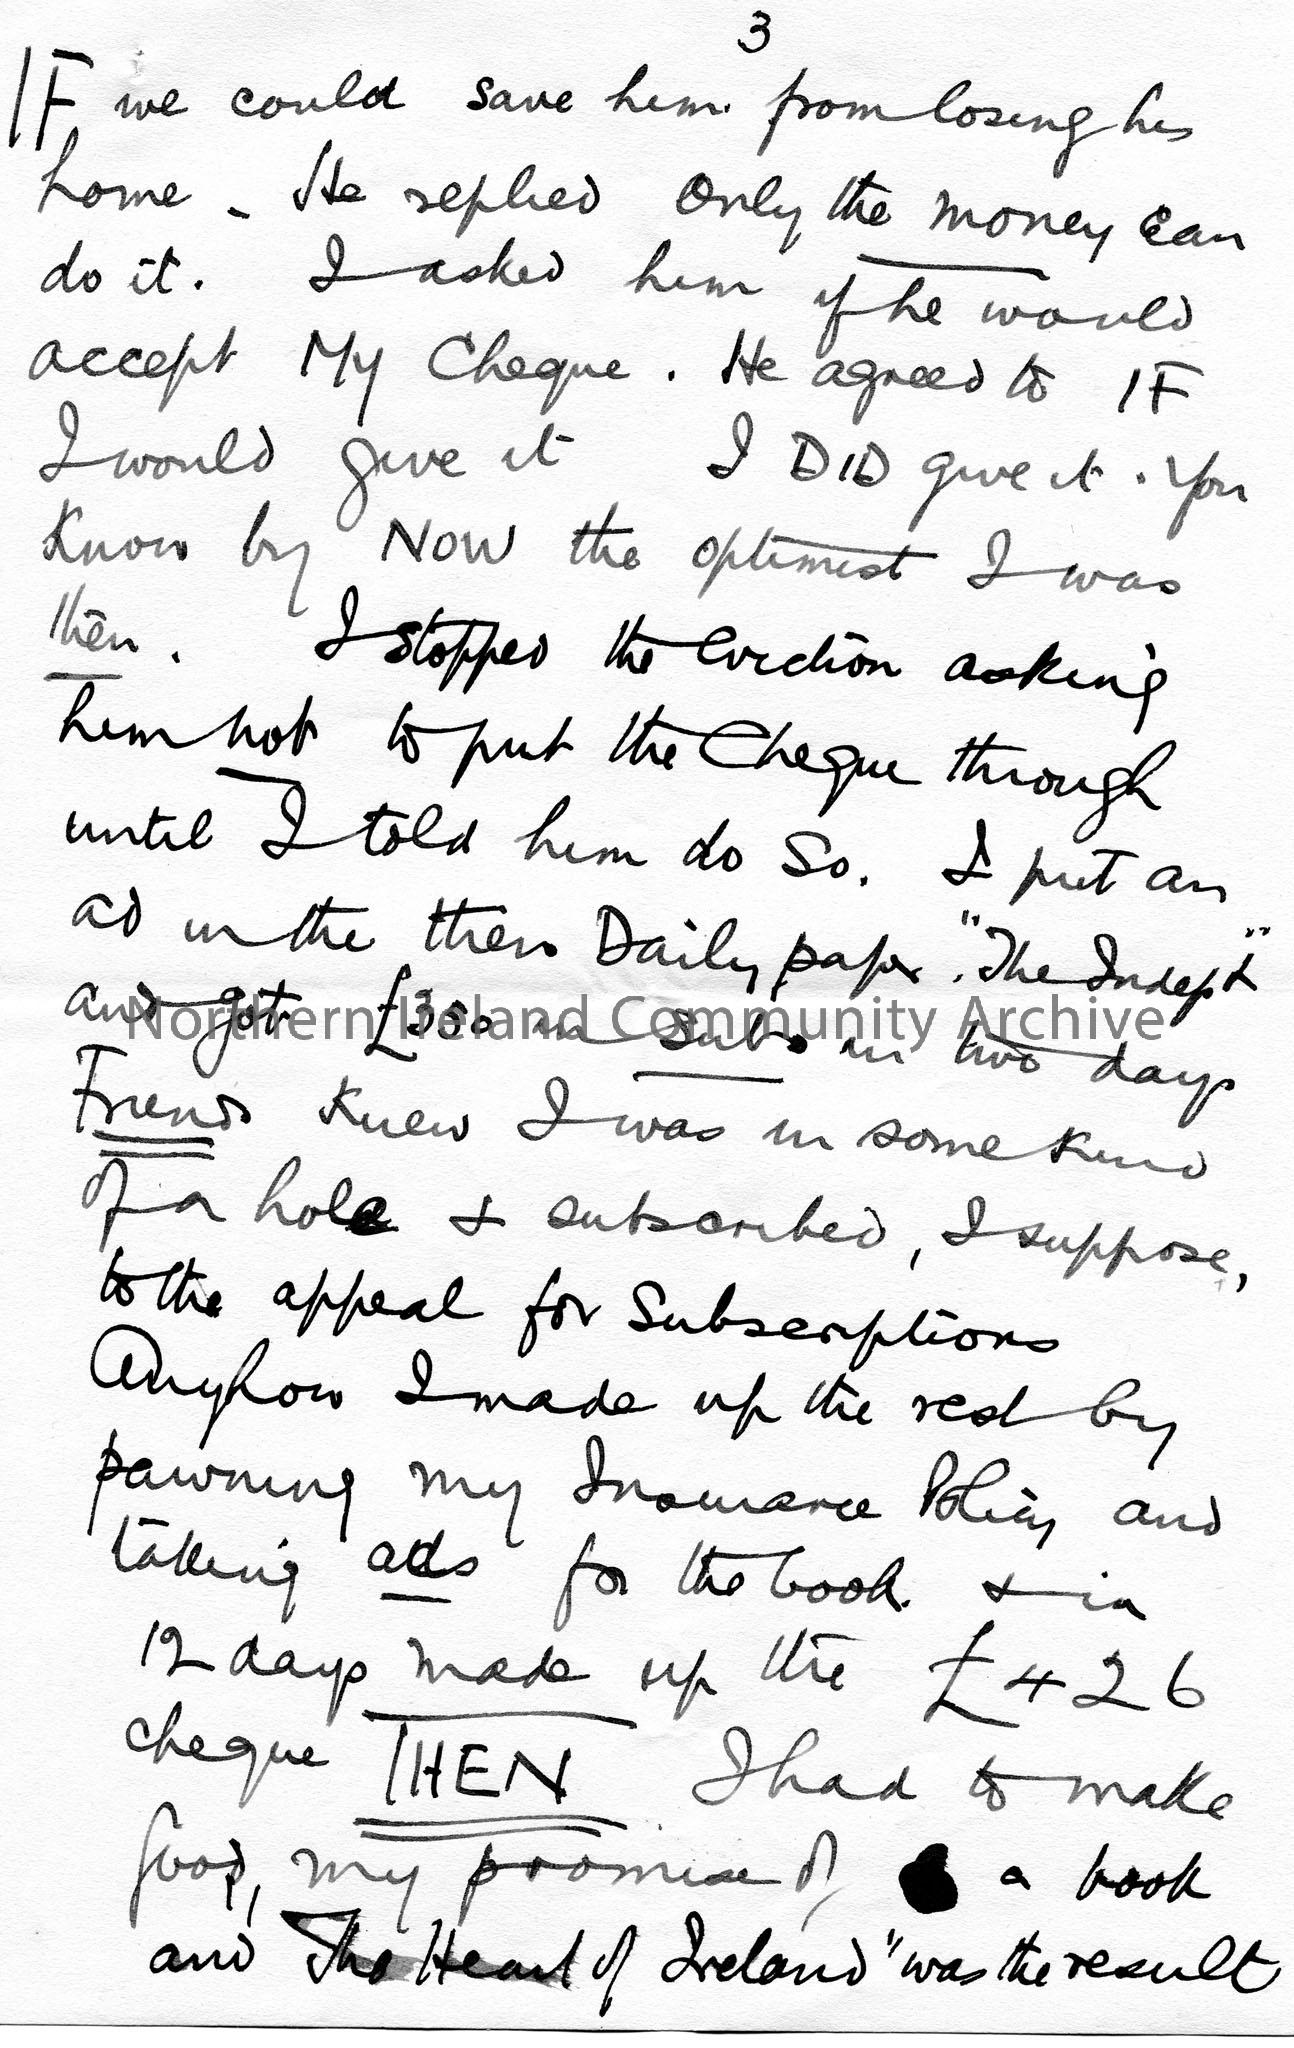 3
IF we could save him from losing his
home. He replied only the money can
do it. I asked him if he would
accept My Cheque. He agreed to IF
I would give it I DID give it. You
know by NOW the optimist I was
then. I stopped the Eviction asking
him not to put the Cheque through
until I told him do so. I put an
ad in the then Daily paper. "The Indept"
and got £350 in subs in two days
Northern Ireland Community Archive
Friends knew I was in some kind
of a hole & subscribed, I suppose,
to the appeal for Subscriptions
Anyhow I made up the rest by
pawning my Insurance Policy and
taking ads for the book. & in
12 days made up the £426
cheque THEN I had to make
good, my promise of a book
and "The Heart of Ireland" was the result